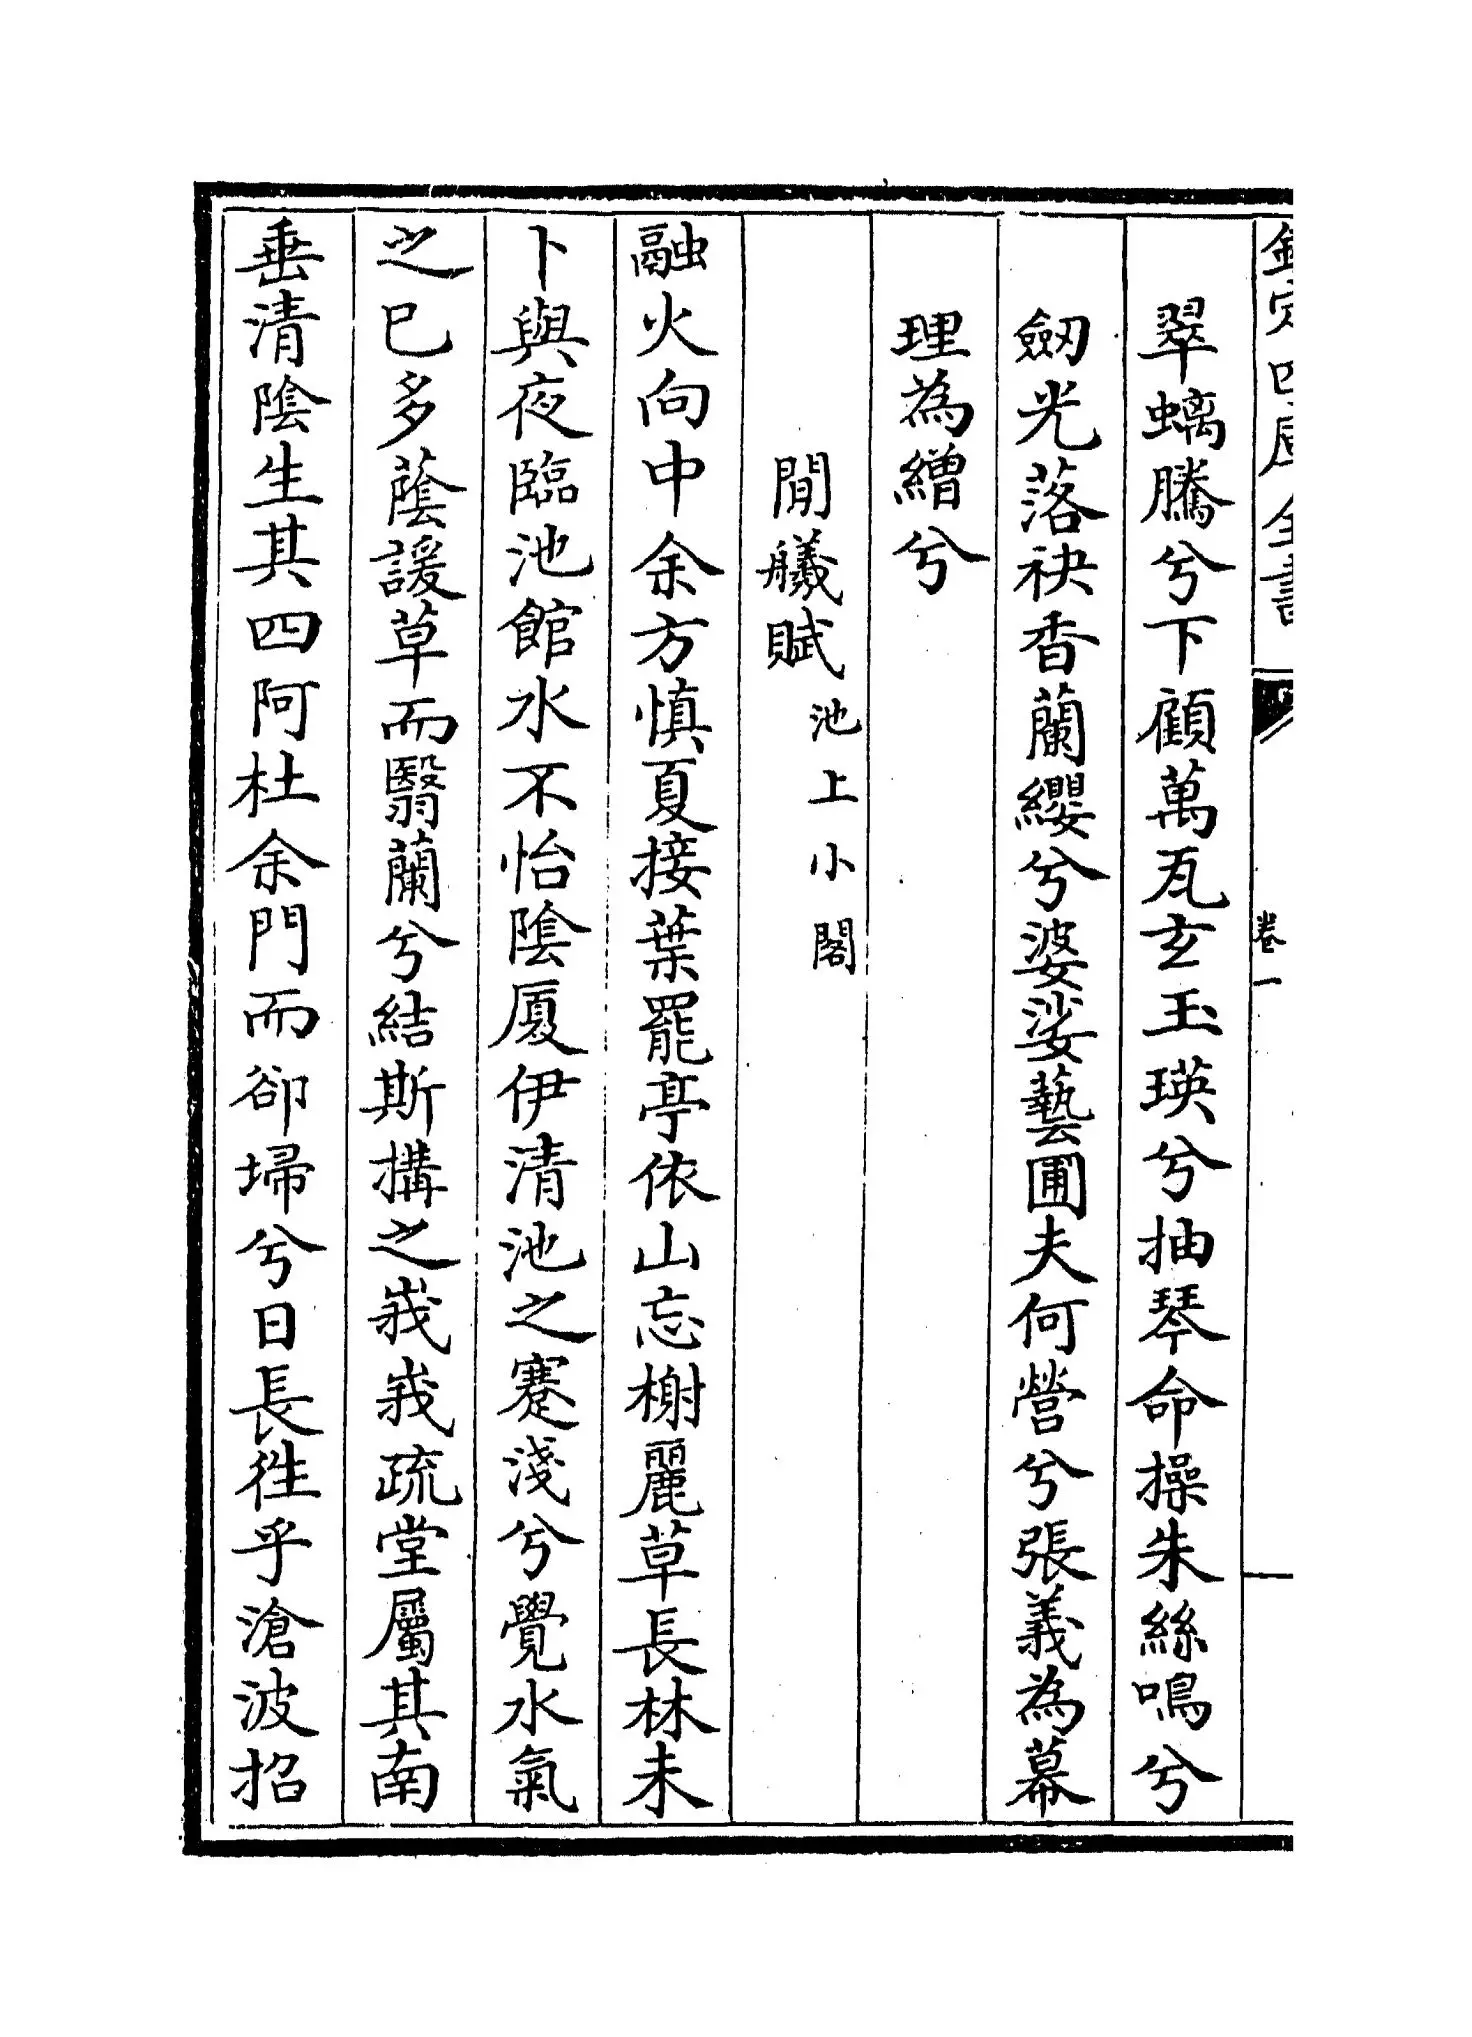 欽定四庫全書
卷一
翠螭騰兮下顧萬瓦玄玉瑛兮抽琴命操朱絲鳴兮
劒光落袂香蘭纓兮婆娑藝圃夫何營兮張義為幕
理為繒兮
閒艤賦池上小閣
融火向中余方慎夏接葉罷亭依山忘榭麗草長林未
卜與夜臨池館水不怡陰廈伊清池之蹇淺兮覺水氣
之已多蔭諼草而翳蘭兮結斯搆之峩峩疏堂屬其南
垂清陰生其四阿杜余門而卻埽兮日長徃乎滄波招